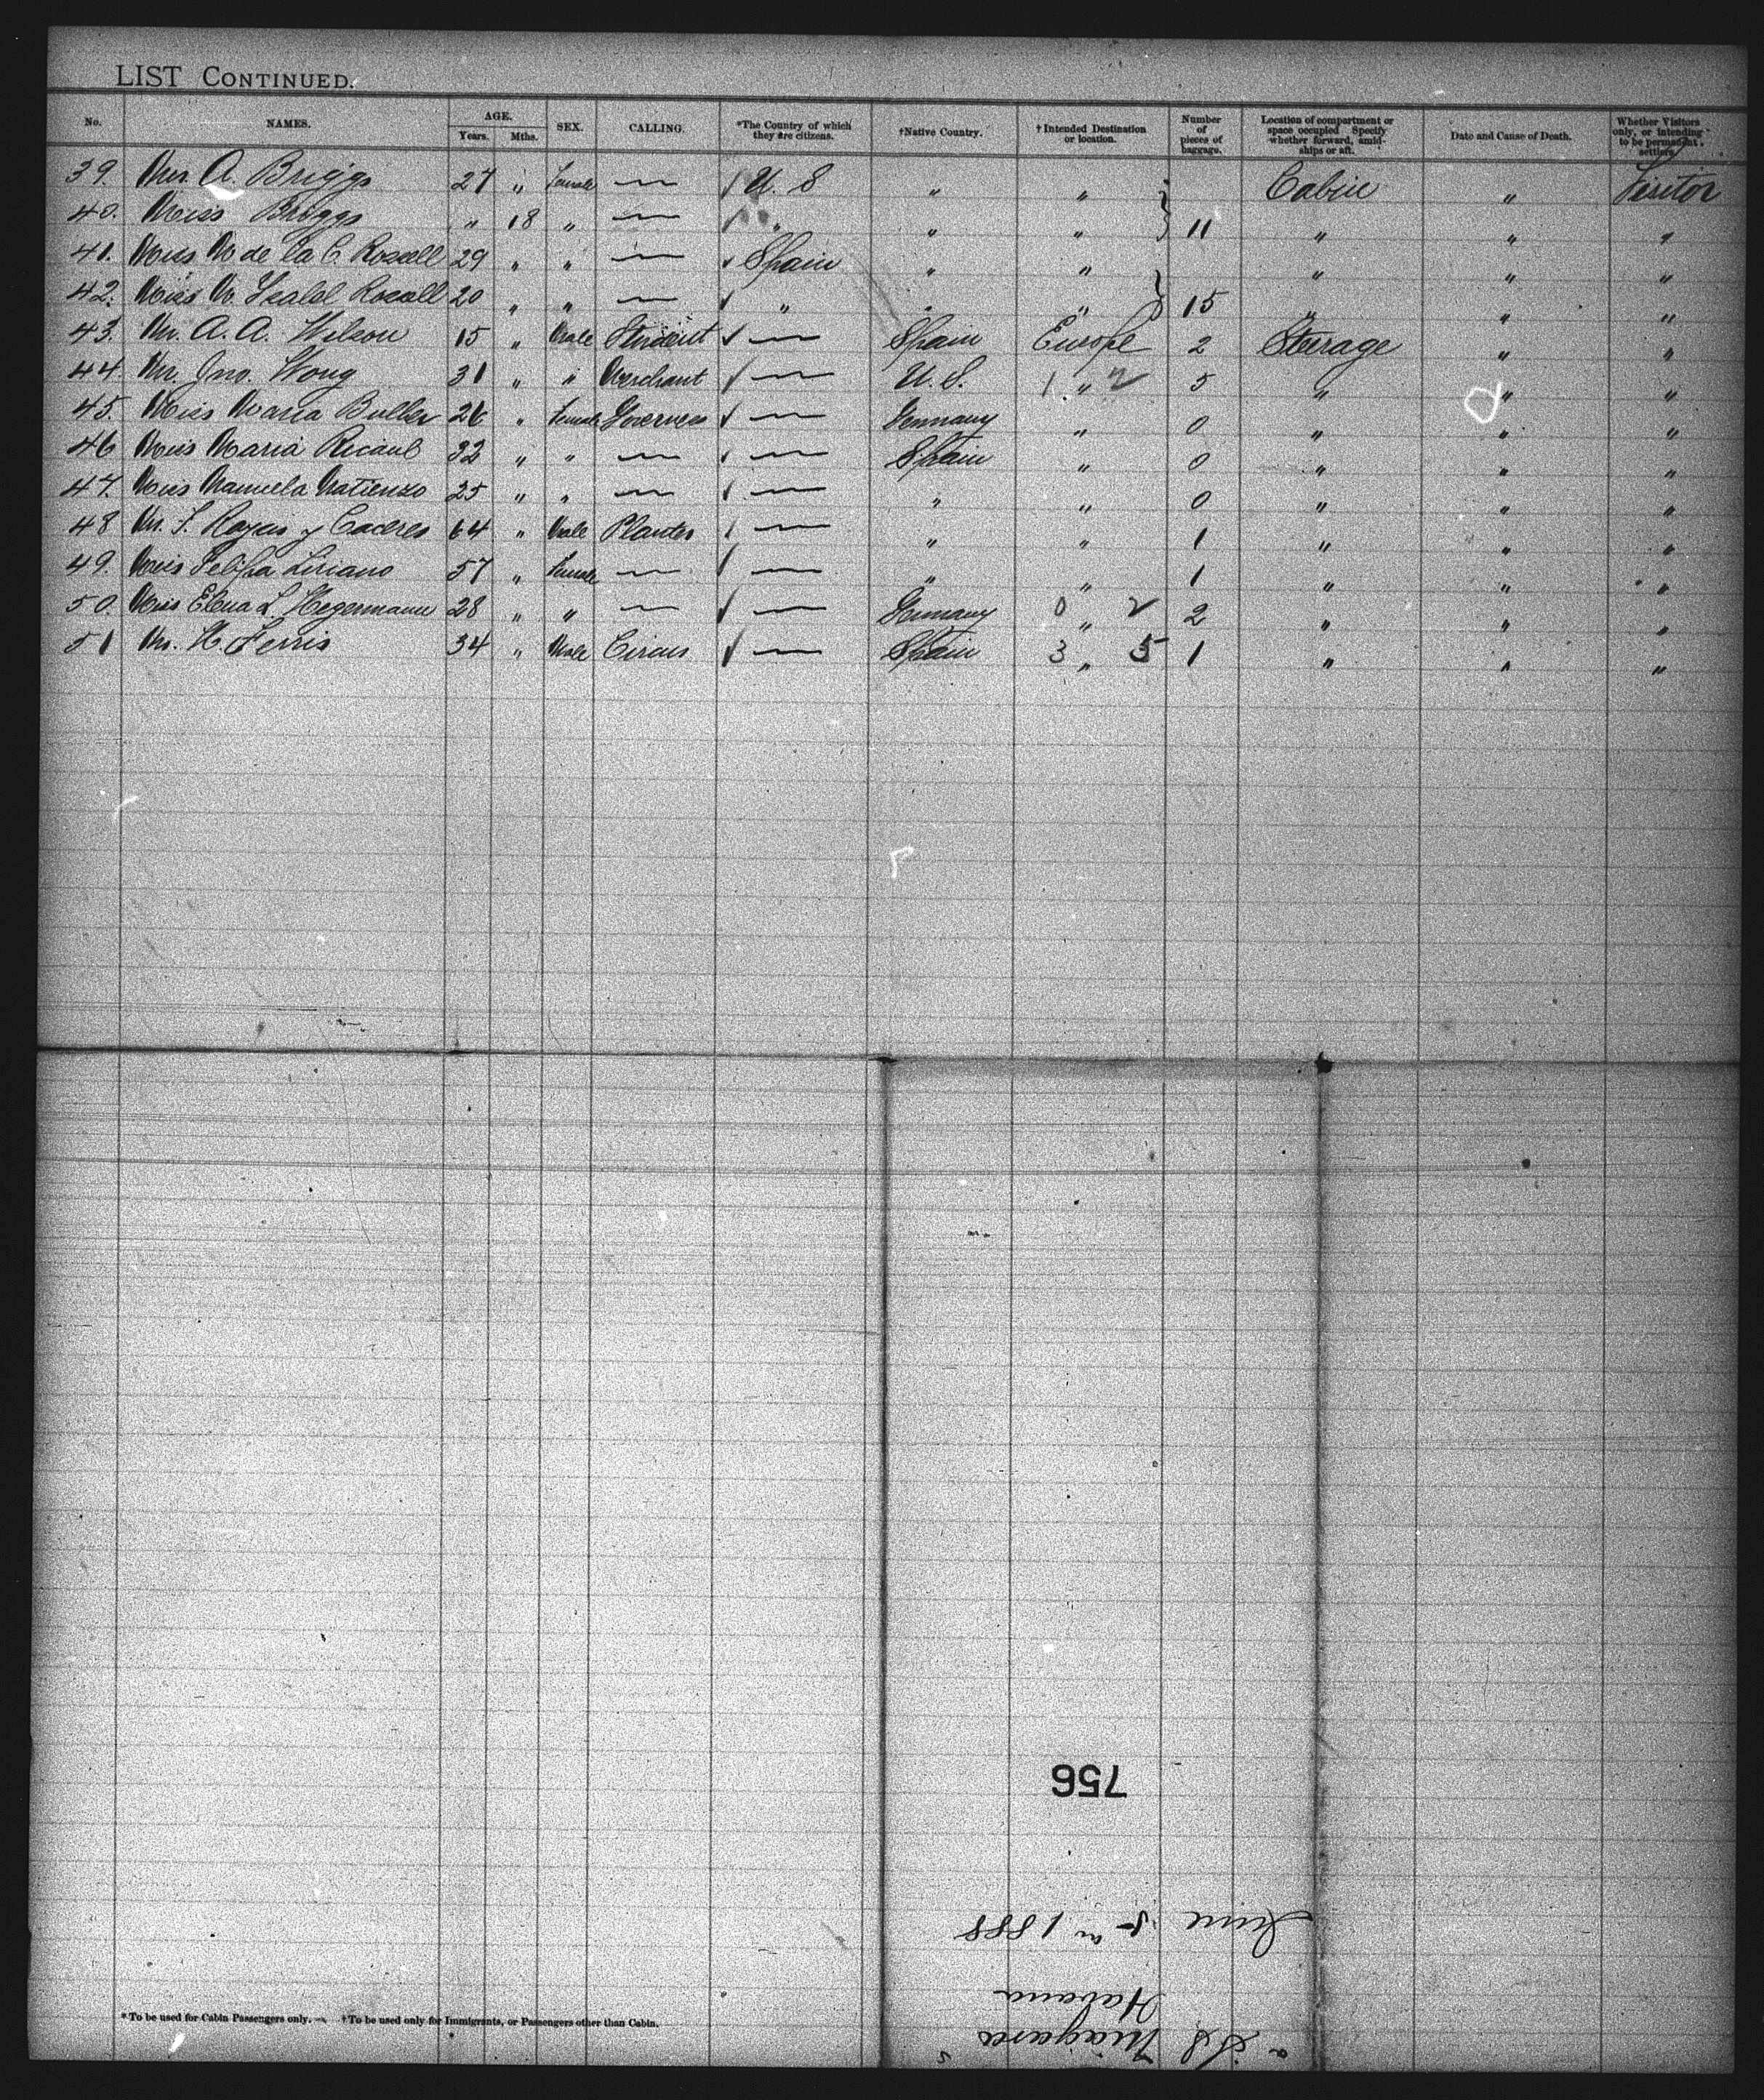 LIST CONTINUED.
No. NAMES. AGE. Years. Mths. SEX. CALLING. *The Country of which they are citizens. †Native Country. †Intended Destination or location. Number of pieces of baggage. Location of compartment or space occupied Specify whether forward, amidships or aft. Date and Cause of Death. Whether Visitors only, or intending to be permanent settlers.
39. Mrs. A. Briggs 27 " Female — ✓ U. S " " Cabin " Visitor
40. Miss Briggs " 18 " — ✓ " " " 11 " " "
41. Miss M de la C. Rosell 29 " " — ✓ Spain " " " " "
42. Miss M. Isabel Rosell 20 " " — ✓ " " " 15 " " "
43. Mr. A. A. Wilson 15 " Male Student ✓ — Spain Europe 2 Steerage " "
44. Mr. Jno. Wong 31 " " Merchant ✓ — U. S. 1 " 2 5 " " "
45. Miss Maria Buller 26 " Female Governess ✓ — Germany " 0 " " "
46 Miss Maria 32 " " — ✓ — Spain " 0 " " "
47. Miss Manuela Matienzo 25 " " — ✓ — " " 0 " " "
48 Mr. F. y 64 " Male Planter — " " 1 " " "
49. Miss Felipa Liriano 57 " Female — — " " 1 " " "
50. Miss Elena L. Hegermann 28 " " — ✓ — Germany 0 " 2 2 " " "
51 Mr. H. Ferris 34 " Male Circus ✓ — Spain 3 " 5 1 " " "
756
June 5 1888
Habana
SS Niagara
*To be used for Cabin Passengers only. †To be used only for Immigrants, or Passengers other than Cabin.